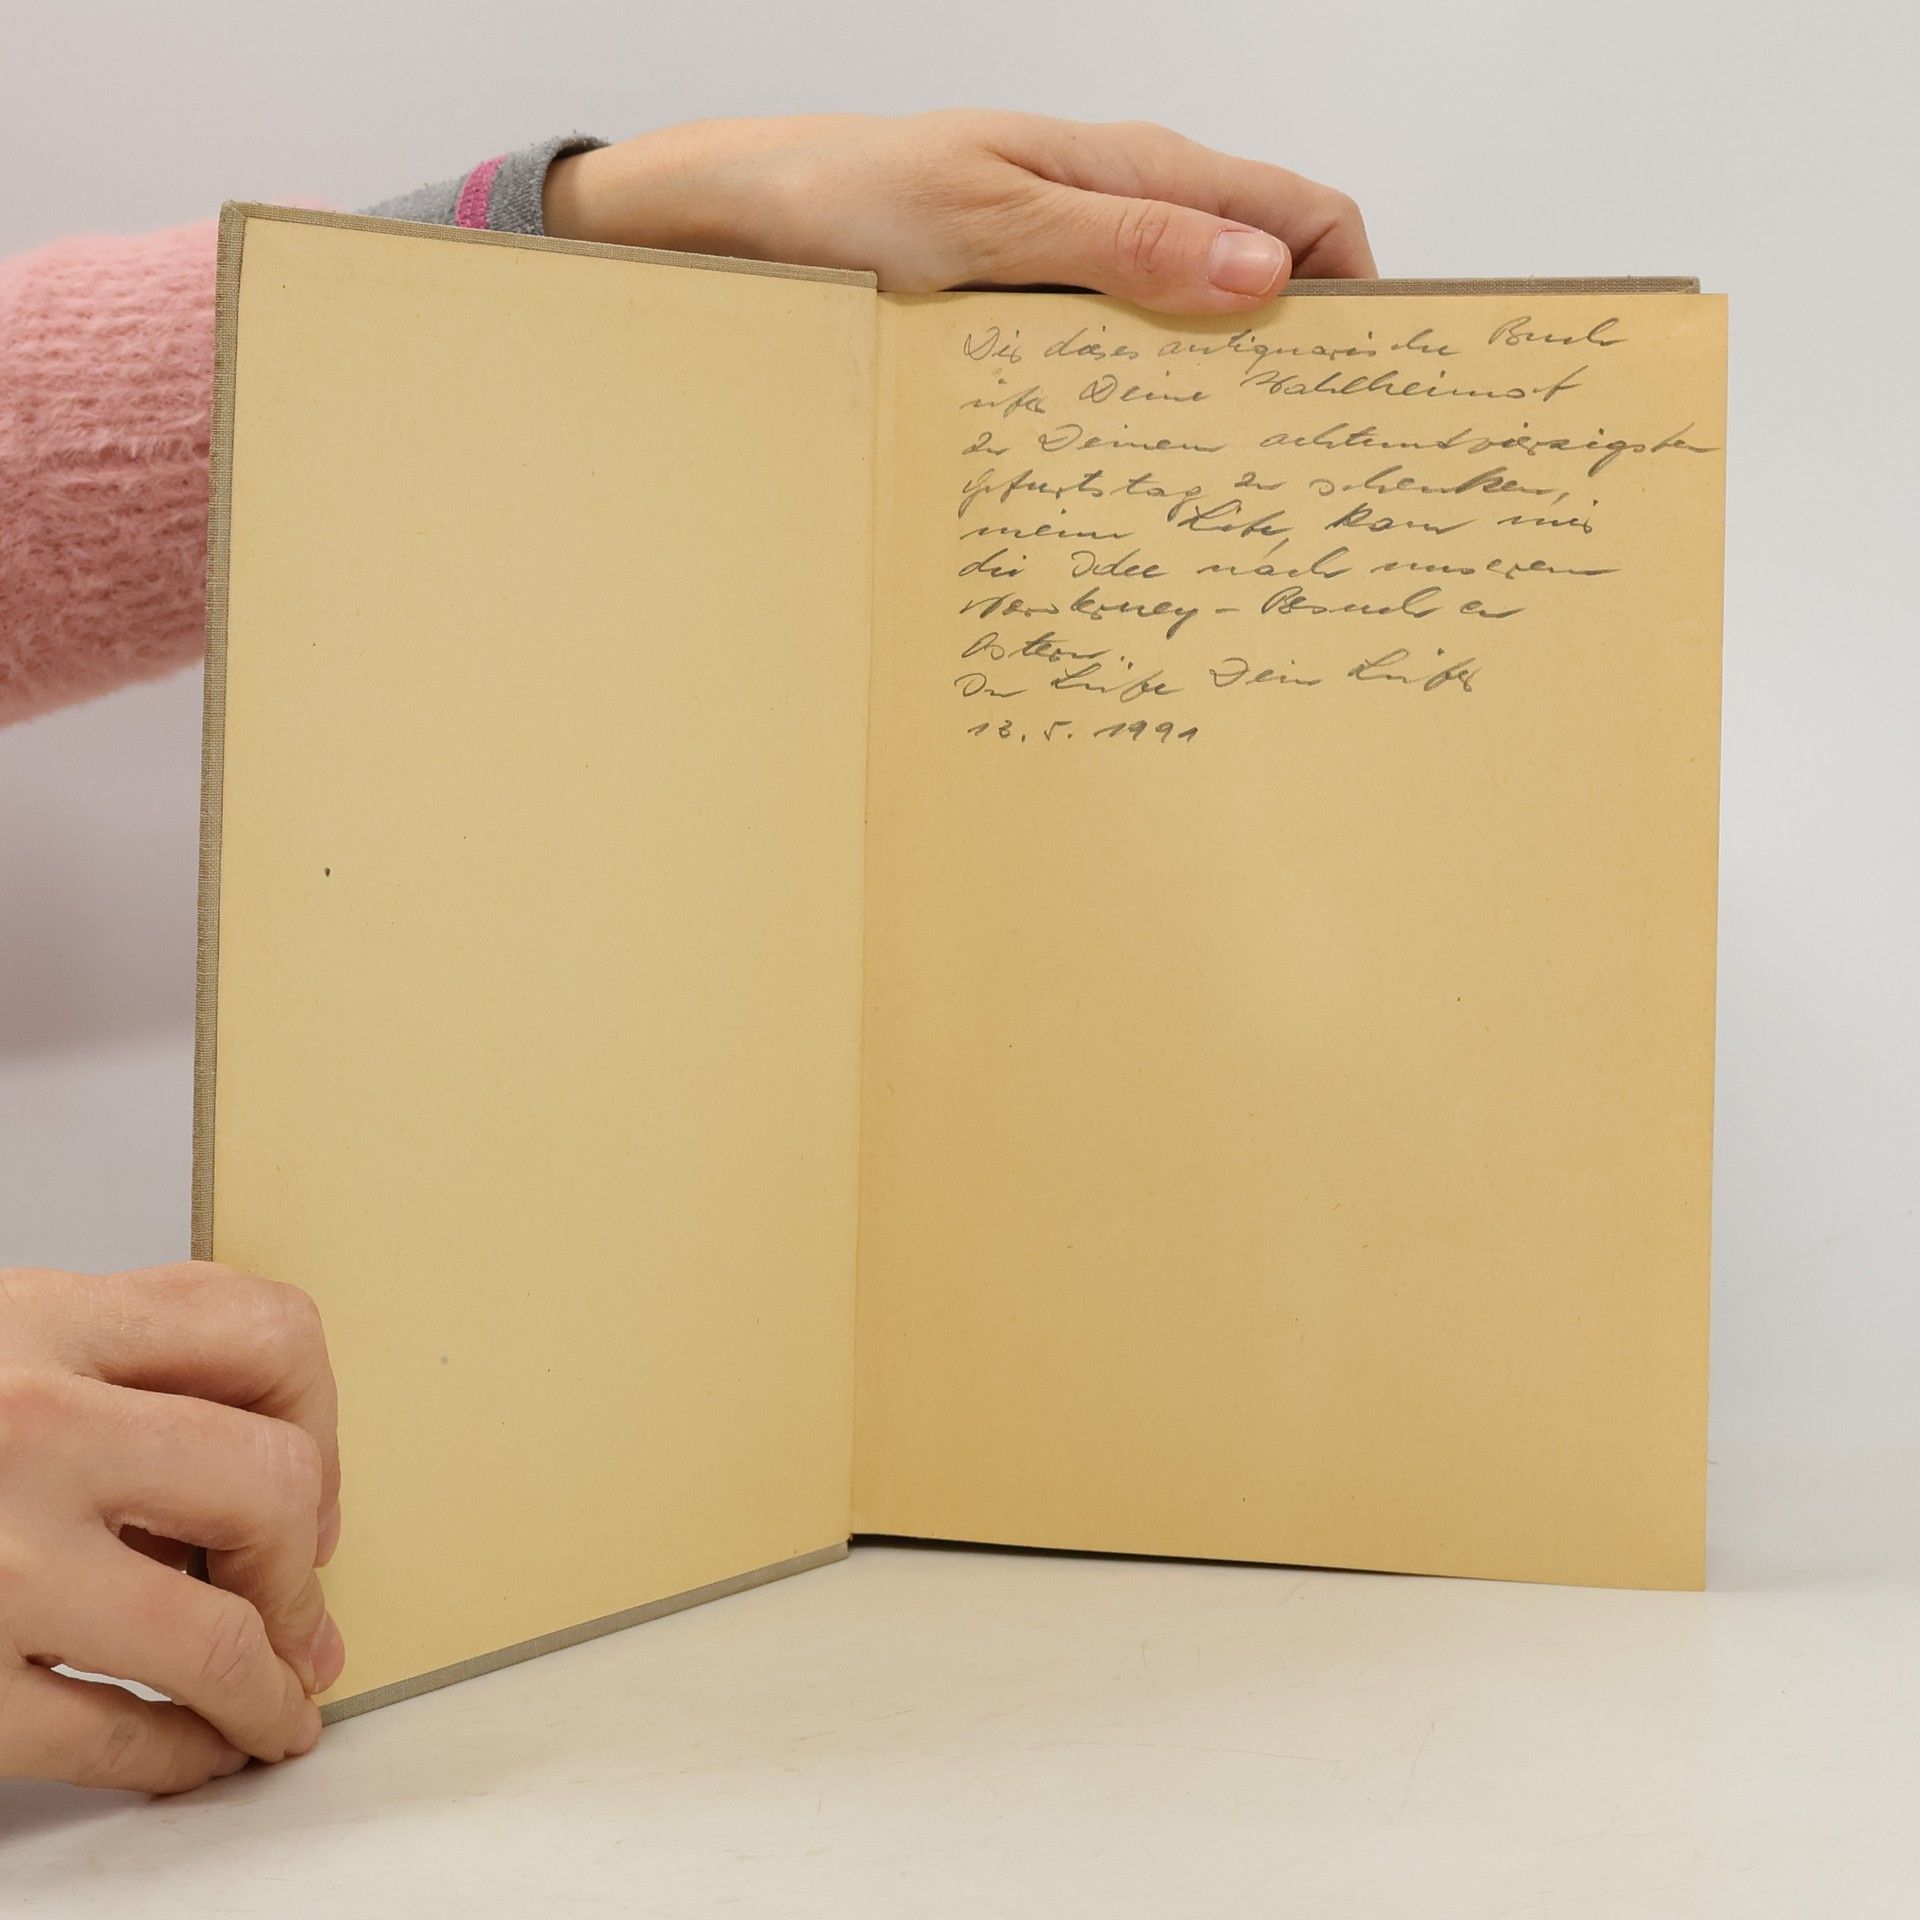 Dir dieses antiquarische Buch
über Deine Wahlheimat
zu Deinem achtundvierzigsten
Geburtstag zu schenken,
meine Liebe, kam mir
die Idee nach unserem
Norderney-Besuch zu
Ostern.
In Liebe Dein
13. 5. 1991